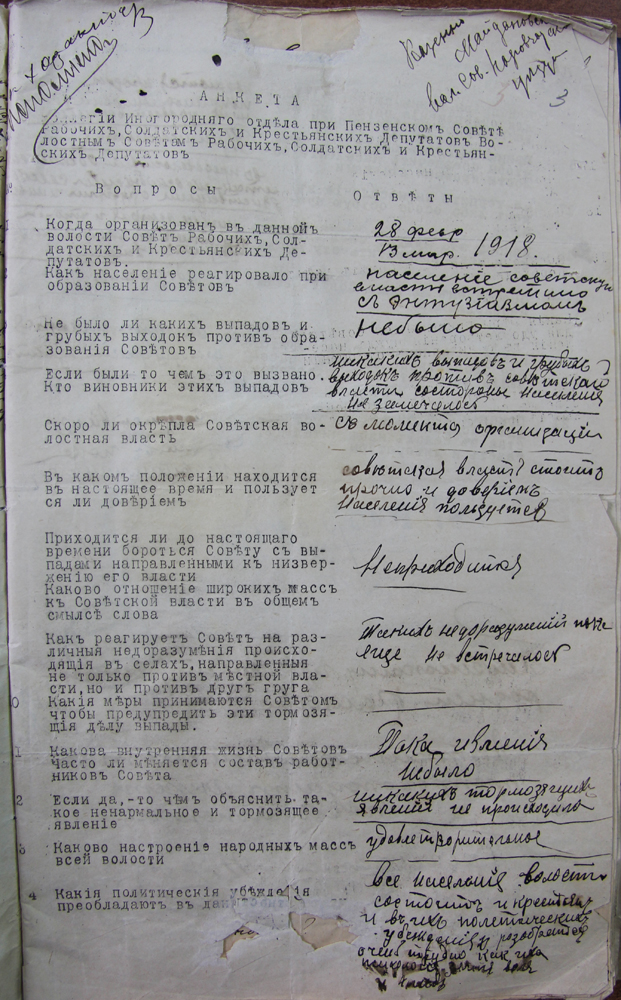 исполнено
Казенно
Майдановск
вол. Сов. Наровчат
3
АНКЕТА
Коллегіи Иногородняго отдѣла при Пензенскомъ Совѣтѣ
Рабочихъ,Солдатскихъ и Крестьянскихъ Депутатовъ Во-
лостнымъ Совѣтамъ Рабочихъ,Солдатскихъ и Крестьян-
скихъ Депутатовъ
Вопросы
Отвѣты
Когда организованъ въ данной
волости Совѣтъ Рабочихъ,Сол-
датскихъ и Крестьянскихъ Де-
путатовъ.
28 февр
13 мар. 1918.
Какъ населеніе реагировало при
образованіи Совѣтовъ
населеніе советскую
власть встретило
съ энтузіазмомъ
Не было ли какихъ выпадовъ и
грубыхъ выходокъ противъ обра-
зованія Совѣтовъ
небыло
Если были то чемъ это вызвано.
Кто виновники этихъ выпадовъ
никакихъ выпадовъ и грубыхъ
выходокъ противъ совѣтской
власти состороны населенія
не замечалось
Скоро ли окрѣпла Совѣтская во-
лостная власть
съ момента организаціи
Въ какомъ положеніи находится
въ настоящее время и пользует
ся ли довѣріемъ
совѣтская власть стоитъ
прочно и довериемъ
населенія пользуется
Приходится ли до настоящаго
времени бороться Совѣту съ вы-
падами направленными къ низвер-
женію его власти
Неприходится
Каково отношеніе широкихъ массъ
къ Совѣтской власти въ общемъ
смыслѣ слова
Какъ реагируетъ Совѣтъ на раз-
личныя недоразумѣнія происхо-
дящія въ селахъ,направленныя
не только противъ мѣстной вла-
сти,но и противъ другъ груга
Такихъ недоразумѣній пока
еще не встречалось
0 Какія мѣры принимаются Совѣтомъ
чтобы предупредить эти тормозя-
щія дѣлу выпады.
1 Какова внутренняя жизнь Совѣтовъ
Часто ли мѣняется составъ работ-
никовъ Совѣта
небыло
2 Если да,-то чѣмъ объяснить та-
кое ненармальное и тормозящее
явленіе
никакихъ тормозящихъ
явленій не происходило
3 Каково настроеніе народныхъ массъ
всей волости
удовлетворительное
4 Какія политическія убѣжденія
преобладаютъ въ
все населеніе волости
состоитъ и крестьян
и въ ихъ политическихъ
убежденіяхъ разобратся
очень трудно какъ ихъ